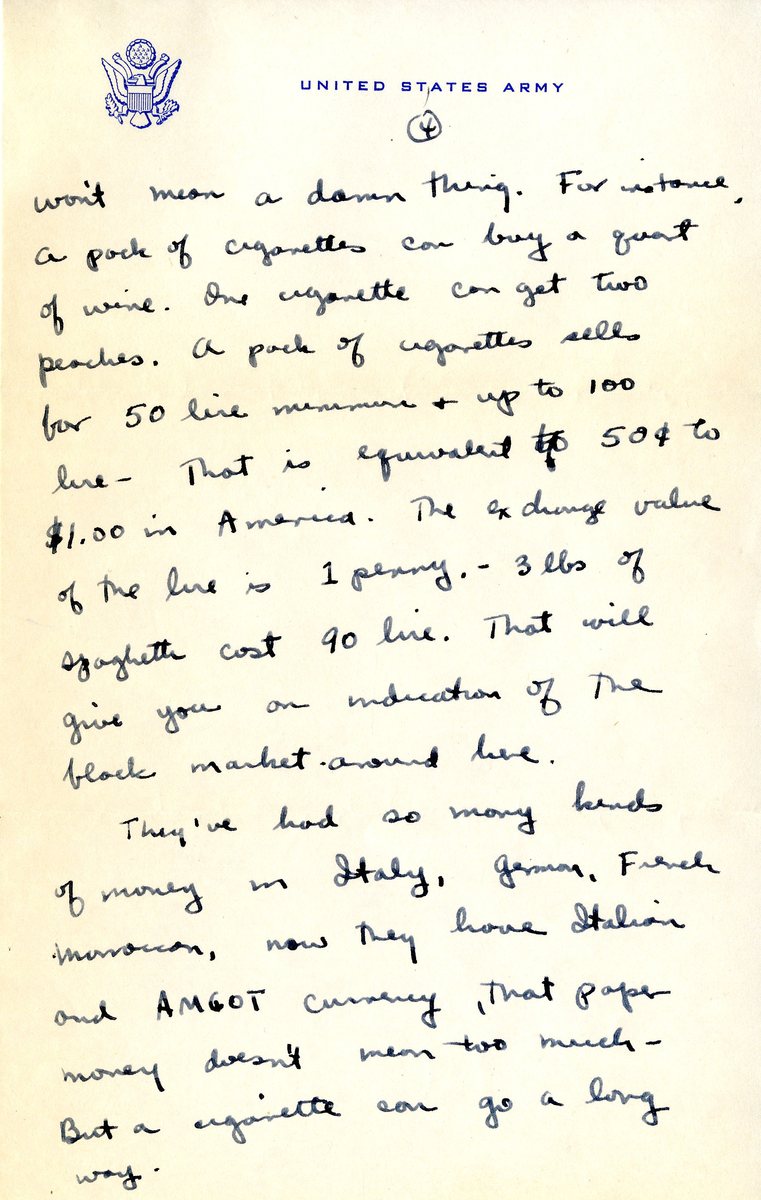 UNITED STATES ARMY
4
won't mean a damn thing. For instance,
a pack of cigarettes can buy a quart
of wine. One cigarette can get two
peaches. A pack of cigarettes sells
for 50 lire minimum + up to 100
lire - That is equivalent to 50¢ to
$1.00 in America. The exchange value
of the lire is 1 penny. - 3 lbs of
spaghetti cost 90 lire. That will
give you an indication of the
black market around here.
They've had so many kinds
of money in Italy, German, French
Moroccan, now they have Italian
and AMGOT currency, that paper
money doesn't mean too much -
But a cigarette can go a long
way.